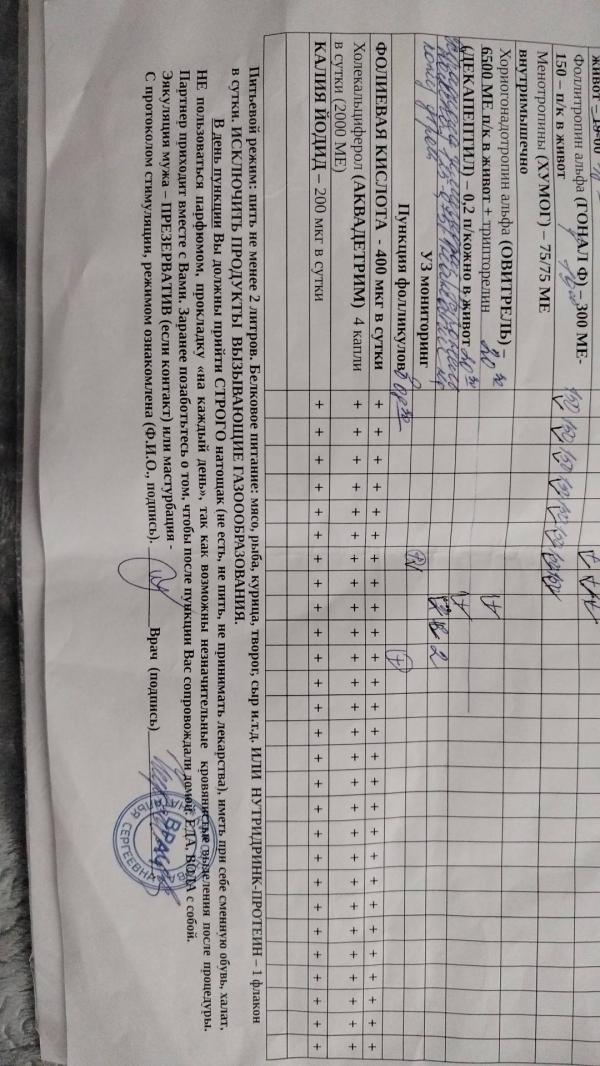 живот – 19-00
Фоллитропин альфа (ГОНАЛ Ф) – 300 МЕ-
150 – п/к в живот
150 150 150 150 150 150
Менотропины (ХУМОГ) – 75/75 МЕ
внутримышечно
Хориогонадотропин альфа (ОВИТРЕЛЬ) –
6500 МЕ п/к в живот + трипторелин
(ДЕКАПЕПТИЛ) – 0,2 п/кожно в живот
УЗ мониторинг
Пункция фолликулов
ФОЛИЕВАЯ КИСЛОТА - 400 мкг в сутки + + + + + + + + + + + + + + + + + + + + + + + +
Холекальциферол (АКВАДЕТРИМ) 4 капли
в сутки (2000 МЕ) + + + + + + + + + + + + + + + + + + + + + + + +
КАЛИЯ ЙОДИД – 200 мкг в сутки + + + + + + + + + + + + + + + + + + + + + + + +
Питьевой режим: пить не менее 2 литров. Белковое питание: мясо, рыба, курица, творог, сыр и.т.д. ИЛИ НУТРИДРИНК-ПРОТЕИН – 1 флакон
в сутки. ИСКЛЮЧИТЬ ПРОДУКТЫ ВЫЗЫВАЮЩИЕ ГАЗОООБРАЗОВАНИЯ.
В день пункции Вы должны прийти СТРОГО натощак (не есть, не пить, не принимать лекарства), иметь при себе сменную обувь, халат,
НЕ пользоваться парфюмом, прокладку «на каждый день», так как возможны незначительные кровянистые выделения после процедуры.
Партнер приходит вместе с Вами. Заранее позаботьтесь о том, чтобы после пункции Вас сопровождали домой. ЕДА, ВОДА с собой.
Эякуляция мужа – ПРЕЗЕРВАТИВ (если контакт) или мастурбация -
С протоколом стимуляции, режимом ознакомлена (Ф.И.О., подпись). Врач (подпись)
ВРАЧ
СЕРГЕЕВНА